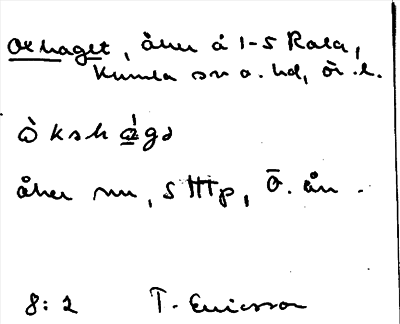 Oxhaget, åker å 1-5 Rala,
Kumla sn o. hd, Ör. l.
ò ksh ág∂
åker nu, S Http, Ö. ån.
8:2 T. Ericsson